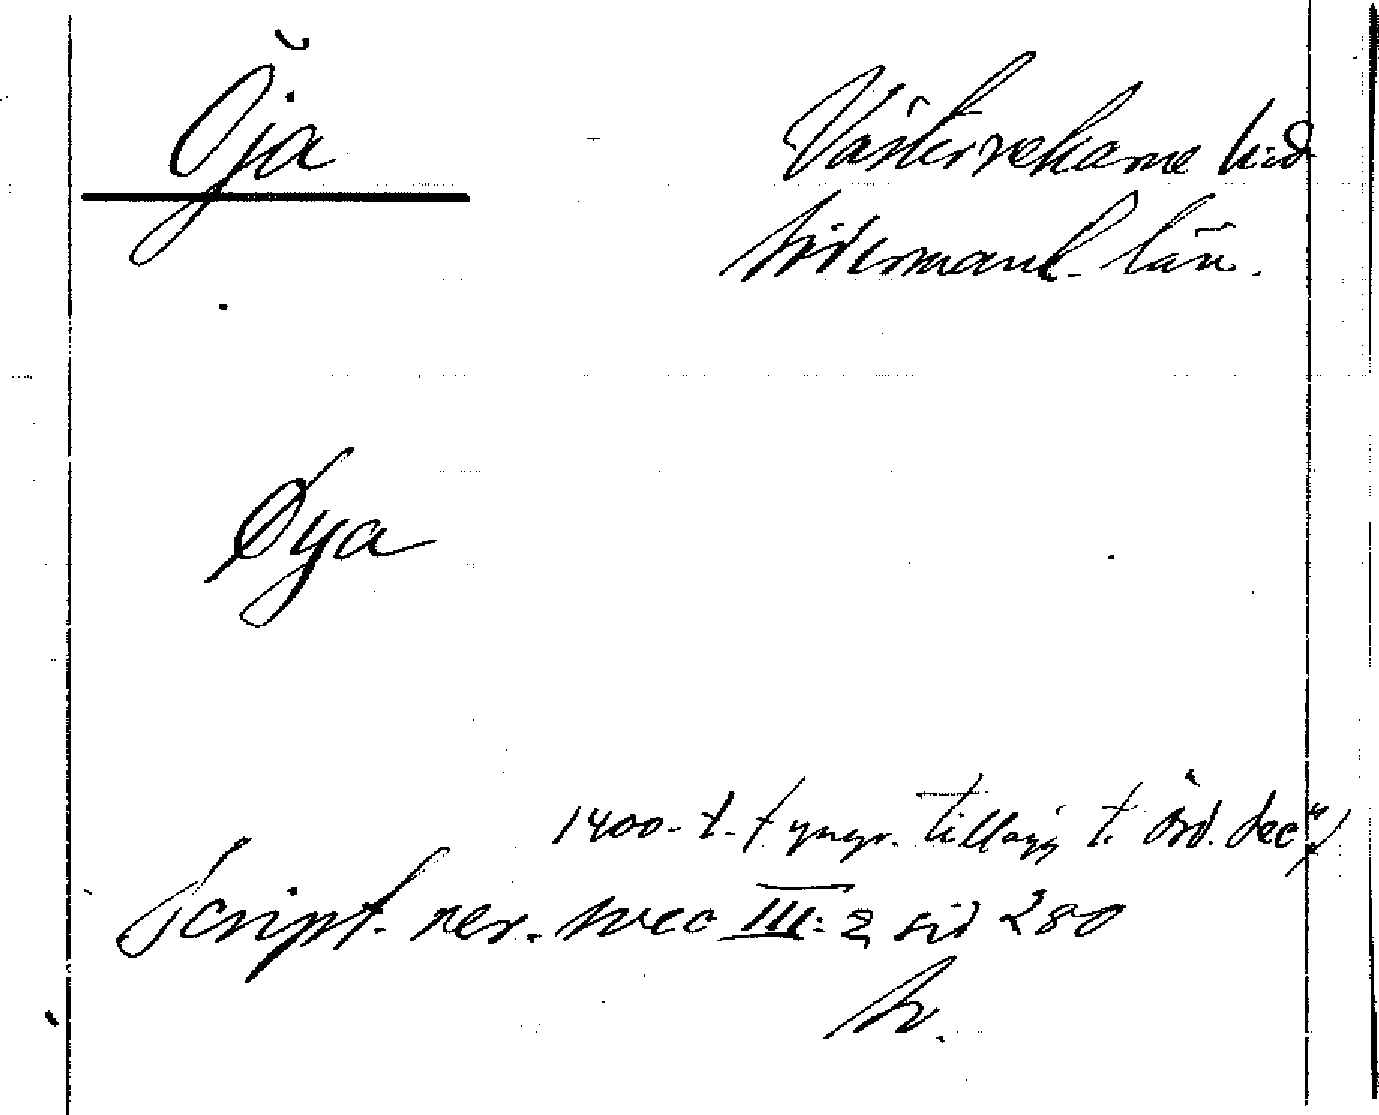 Öja
Västerrekarne hd
Södermanl. län.
Øya
1400-t. t yngr. tillägg t. örd. dec"
Script. rer. svec III: 2 sid 280